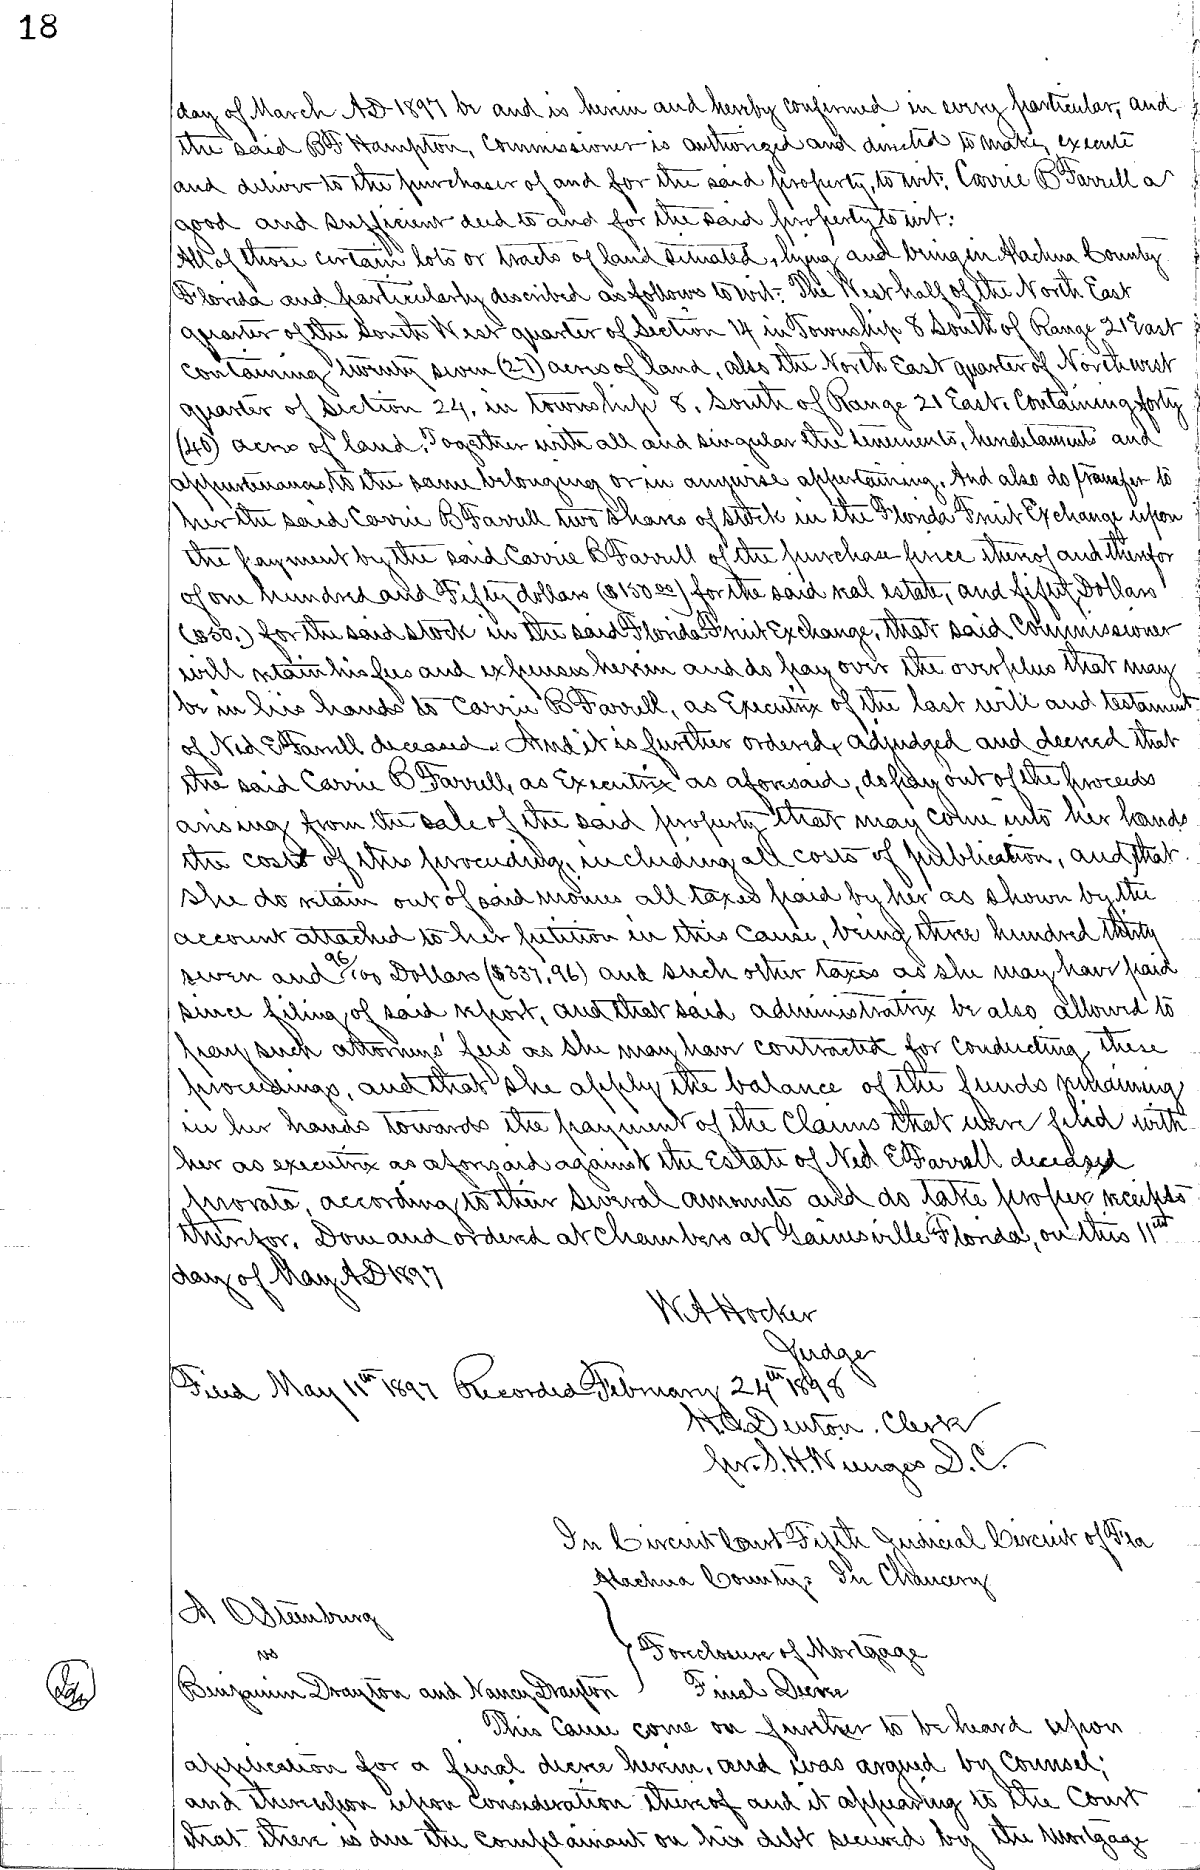 18
day of March AD 1897 be and is herein and hereby confirmed in every particular, and
the said B F Hampton, Commissioner is authorized and directed to make, execute
and deliver to the purchaser of and for the said property, to wit: Carrie B Farrell a
good and sufficient deed to and for the said property to wit:
All of those certain lots or tracts of land situated, lying and being in Alachua County
Florida and particularly described as follows to wit: The West half of the North East
quarter of the South West quarter of Section 14 in Township 8 South of Range 21 East
containing twenty seven (27) acres of land, also the North East quarter of Northwest
quarter of Section 24, in township 8, South of Range 21 East. Containing forty
(40) acres of land. Together with all and singular the tenements, hereditaments and
appurtenances, to the same belonging or in anywise appertaining. And also do transfer to
her the said Carrie B Farrell two shares of stock in the Florida Fruit Exchange upon
the payment by the said Carrie B Farrell of the purchase price thereof and therefor
of one hundred and Fifty dollars ($150.00) for the said real estate, and fifty Dollars
($50.) for the said stock in the said Florida Fruit Exchange, that said Commissioner
will retain his fees and expenses herein and do pay over the overplus that may
be in his hands to Carrie B Farrell, as Executrix of the last will and testament
of Ned E Farrell deceased. And it is further ordered, adjudged and decreed that
the said Carrie B Farrell, as Executrix as aforesaid, do pay out of the proceeds
arising from the sale of the said property that may come into her hands
the costs of this proceeding, including all costs of publication, and that
she do retain out of said monies all taxes paid by her as shown by the
account attached to her petition in this cause, being three hundred thirty
seven and 96/100 Dollars ($337,96) and such other taxes as she may have paid
since filing of said report, and that said administratrix be also allowed to
pay such attorneys' fees as she may have contracted for conducting these
proceedings, and that she apply the balance of the funds remaining
in her hands towards the payment of the claims that were filed with
her as executrix as aforesaid against the Estate of Ned E Farrell deceased
prorata, according to their several amounts and do take proper receipts
therefor. Done and ordered at Chambers at Gainesville Florida, on this 11th
day of May AD 1897
W A Hocker
Judge
Filed May 11th 1897 Recorded February 24th 1898
H. C. Denton. Clerk
pr. S. H. Wienges D. C.
In Circuit Court Fifth Judicial Circuit of Fla
Alachua County: In Chancery
A O Steenburg
vs
Foreclosure of Mortgage
Benjamin Drayton and Nancy Drayton } Final Decree
This Cause come on further to be heard upon
application for a final decree herein, and was argued by Counsel;
and thereupon upon consideration thereof and it appearing to the Court
that there is due the complainant on his debt secured by the Mortgage